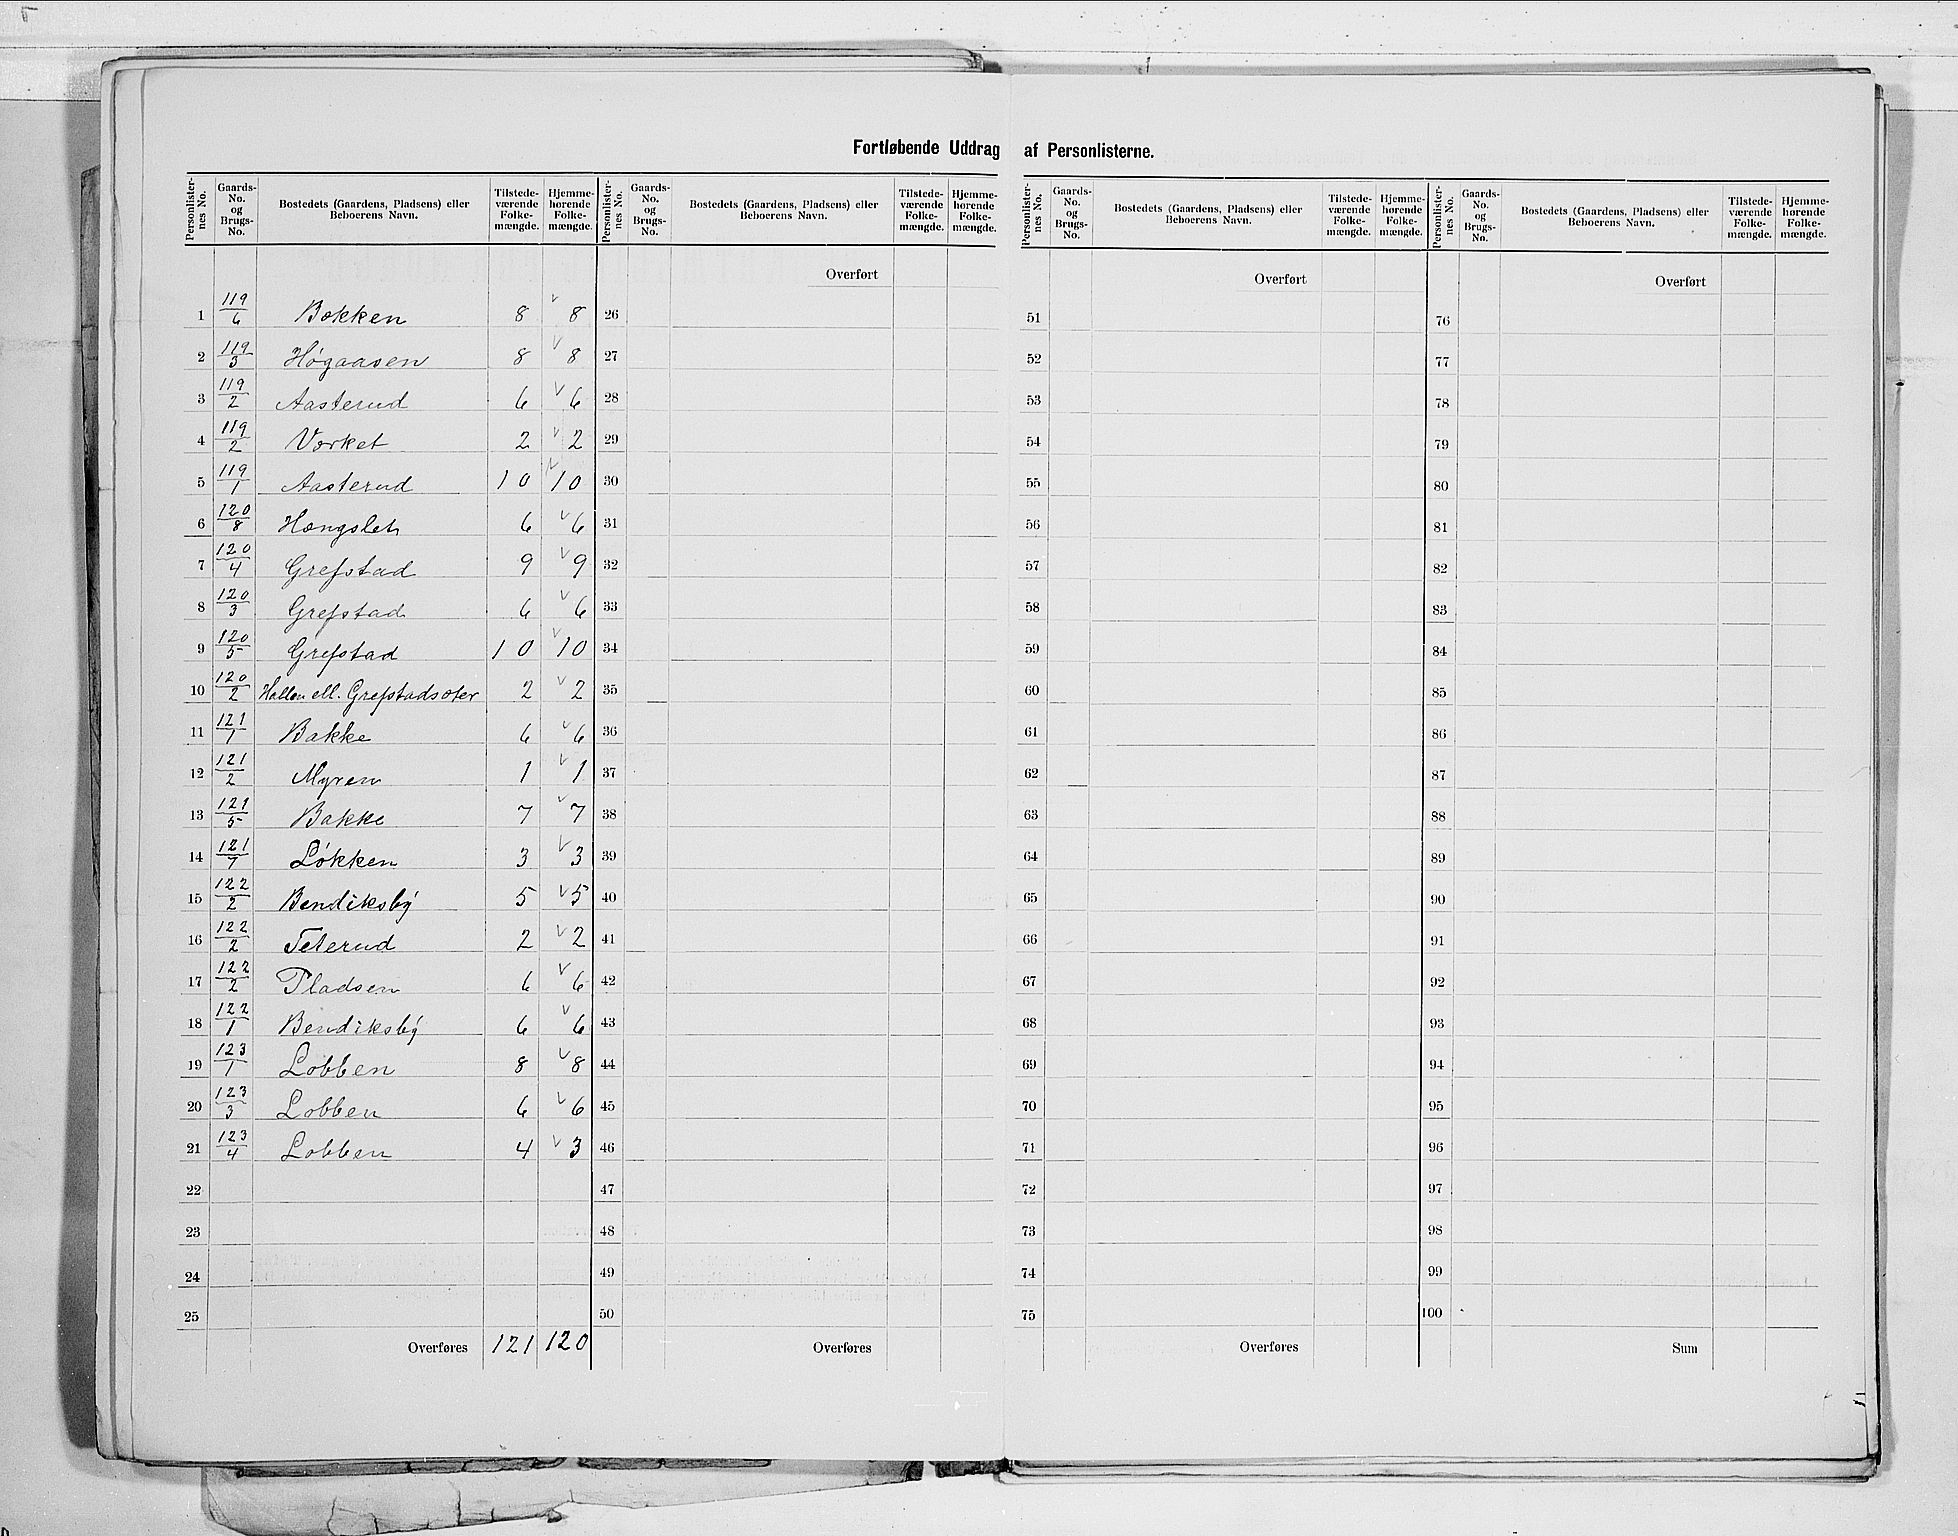 Fortløbende Uddrag af Personlisterne.
Personlisternes No. | Gaards-No. og Brugs-No. | Bostedets (Gaardens, Pladsens) eller Beboerens Navn. | Tilstedeværende Folkemængde. | Hjemmehørende Folkemængde. | Personlisternes No. | Gaards-No. og Brugs-No. | Bostedets (Gaardens, Pladsens) eller Beboerens Navn. | Tilstedeværende Folkemængde. | Hjemmehørende Folkemængde. | Personlisternes No. | Gaards-No. og Brugs-No. | Bostedets (Gaardens, Pladsens) eller Beboerens Navn. | Tilstedeværende Folkemængde. | Hjemmehørende Folkemængde. | Personlisternes No. | Gaards-No. og Brugs-No. | Bostedets (Gaardens, Pladsens) eller Beboerens Navn. | Tilstedeværende Folkemængde. | Hjemmehørende Folkemængde.
Overført Overført Overført
1 119/6 Bakken 8 v 8 26 51 76
2 119/3 Høgaasen 8 v 8 27 52 77
3 119/2 Aasterud 6 v 6 28 53 78
4 119/2 Værket 2 v 2 29 54 79
5 119/1 Aasterud 10 v 10 30 55 80
6 120/8 Hængslet 6 v 6 31 56 81
7 120/4 Grefstad 9 v 9 32 57 82
8 120/3 Grefstad 6 v 6 33 58 83
9 120/5 Grefstad 10 v 10 34 59 84
10 120/2 ell. 2 v 2 35 60 85
11 121/1 Bakke 6 v 6 36 61 86
12 121/2 Myren 1 v 1 37 62 87
13 121/5 Bakke 7 v 7 38 63 88
14 121/7 Løkken 3 v 3 39 64 89
15 122/2 Bendiksby 5 v 5 40 65 90
16 122/2 Teterud 2 v 2 41 66 91
17 122/2 Pladsen 6 v 6 42 67 92
18 122/1 Bendiksby 6 v 6 43 68 93
19 123/1 Lobben 8 v 8 44 69 94
20 123/3 Lobben 6 v 6 45 70 95
21 123/4 Lobben 4 v 3 46 71 96
22 47 72 97
23 48 73 98
24 49 74 99
25 50 75 100
Overføres 121 120 Overføres Overføres Sum